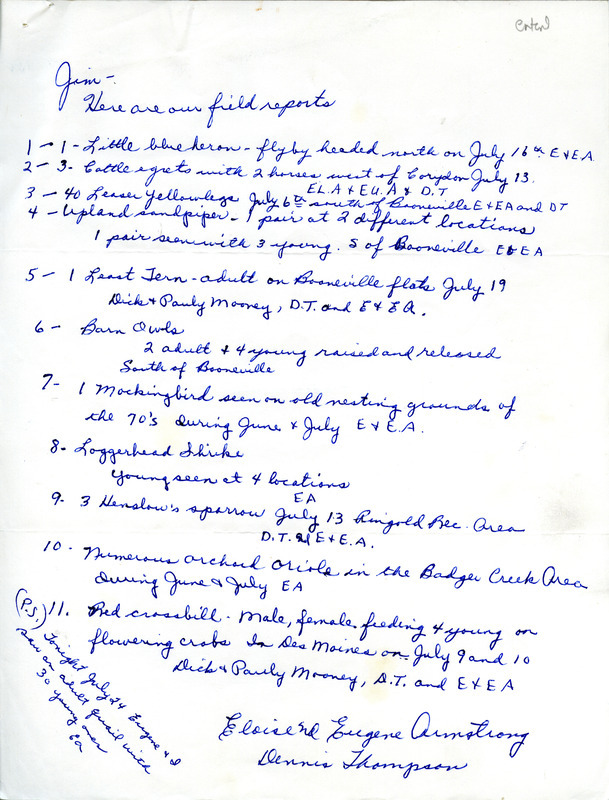 Jim -
Here are our field reports
1 - 1 - Little blue heron - flyby headed north on July 16th E & E.A.
2 - 3 - Cattle egrets with 2 horses west of Corydon July 13.
EL.A & EU.A & D.T
3 - 40 Lesser Yellowlegs July 6th south of Booneville E & EA and DT
4 - Upland sandpiper - 1 pair at 2 different locations
1 pair seen with 3 young. S of Booneville E & EA
5 - 1 Least Tern - adult on Booneville flats July 19
Dick & Pauly Mooney, D.T. and E & EA.
6 - Barn Owls
2 adult & 4 young raised and released
South of Booneville
7 - 1 Mockingbird seen on old nesting grounds of
the 70's during June & July E & E.A.
8 - Loggerhead Shrike
Young seen at 4 locations
EA
9. 3 Henslow's sparrow July 13 Ringold Rec. Area
D.T. E & E.A.
10. Numerous orchard oriole in the Badger Creek Area
during June & July EA
11. Red crossbill - Male, female feeding 4 young on
flowering crabs In Des Moines on July 9 and 10
Dick & Pauly Mooney, D.T. and E & EA
(P.S.) Tonight July 24 Eugene & I
saw an adult quail with
30 young over
EA
Eloise Eugene Armstrong
Dennis Thompson